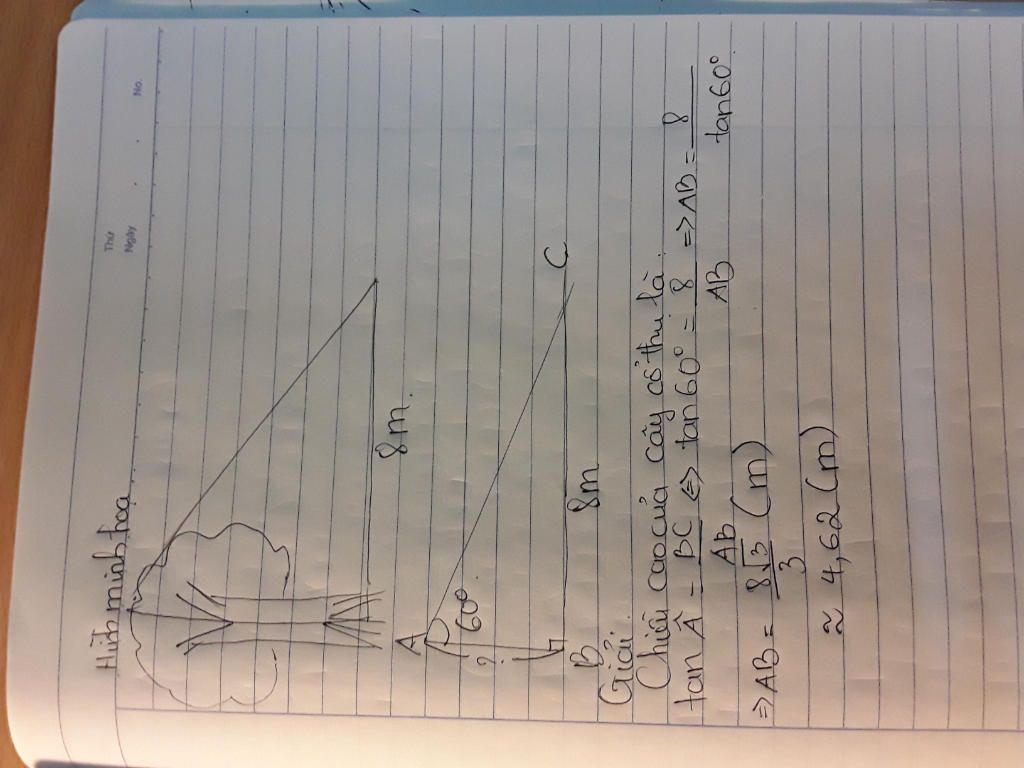 Thứ
Ngày
No.
Hình minh họa
8m.
A
60°
?
B
8m
C
Giải
Chiều cao của cây cổ thụ là:
tan Â = BC/AB <=> tan60° = 8/AB => AB = 8/tan60°
=> AB = 8√3/3 (m)
≈ 4,62 (m)